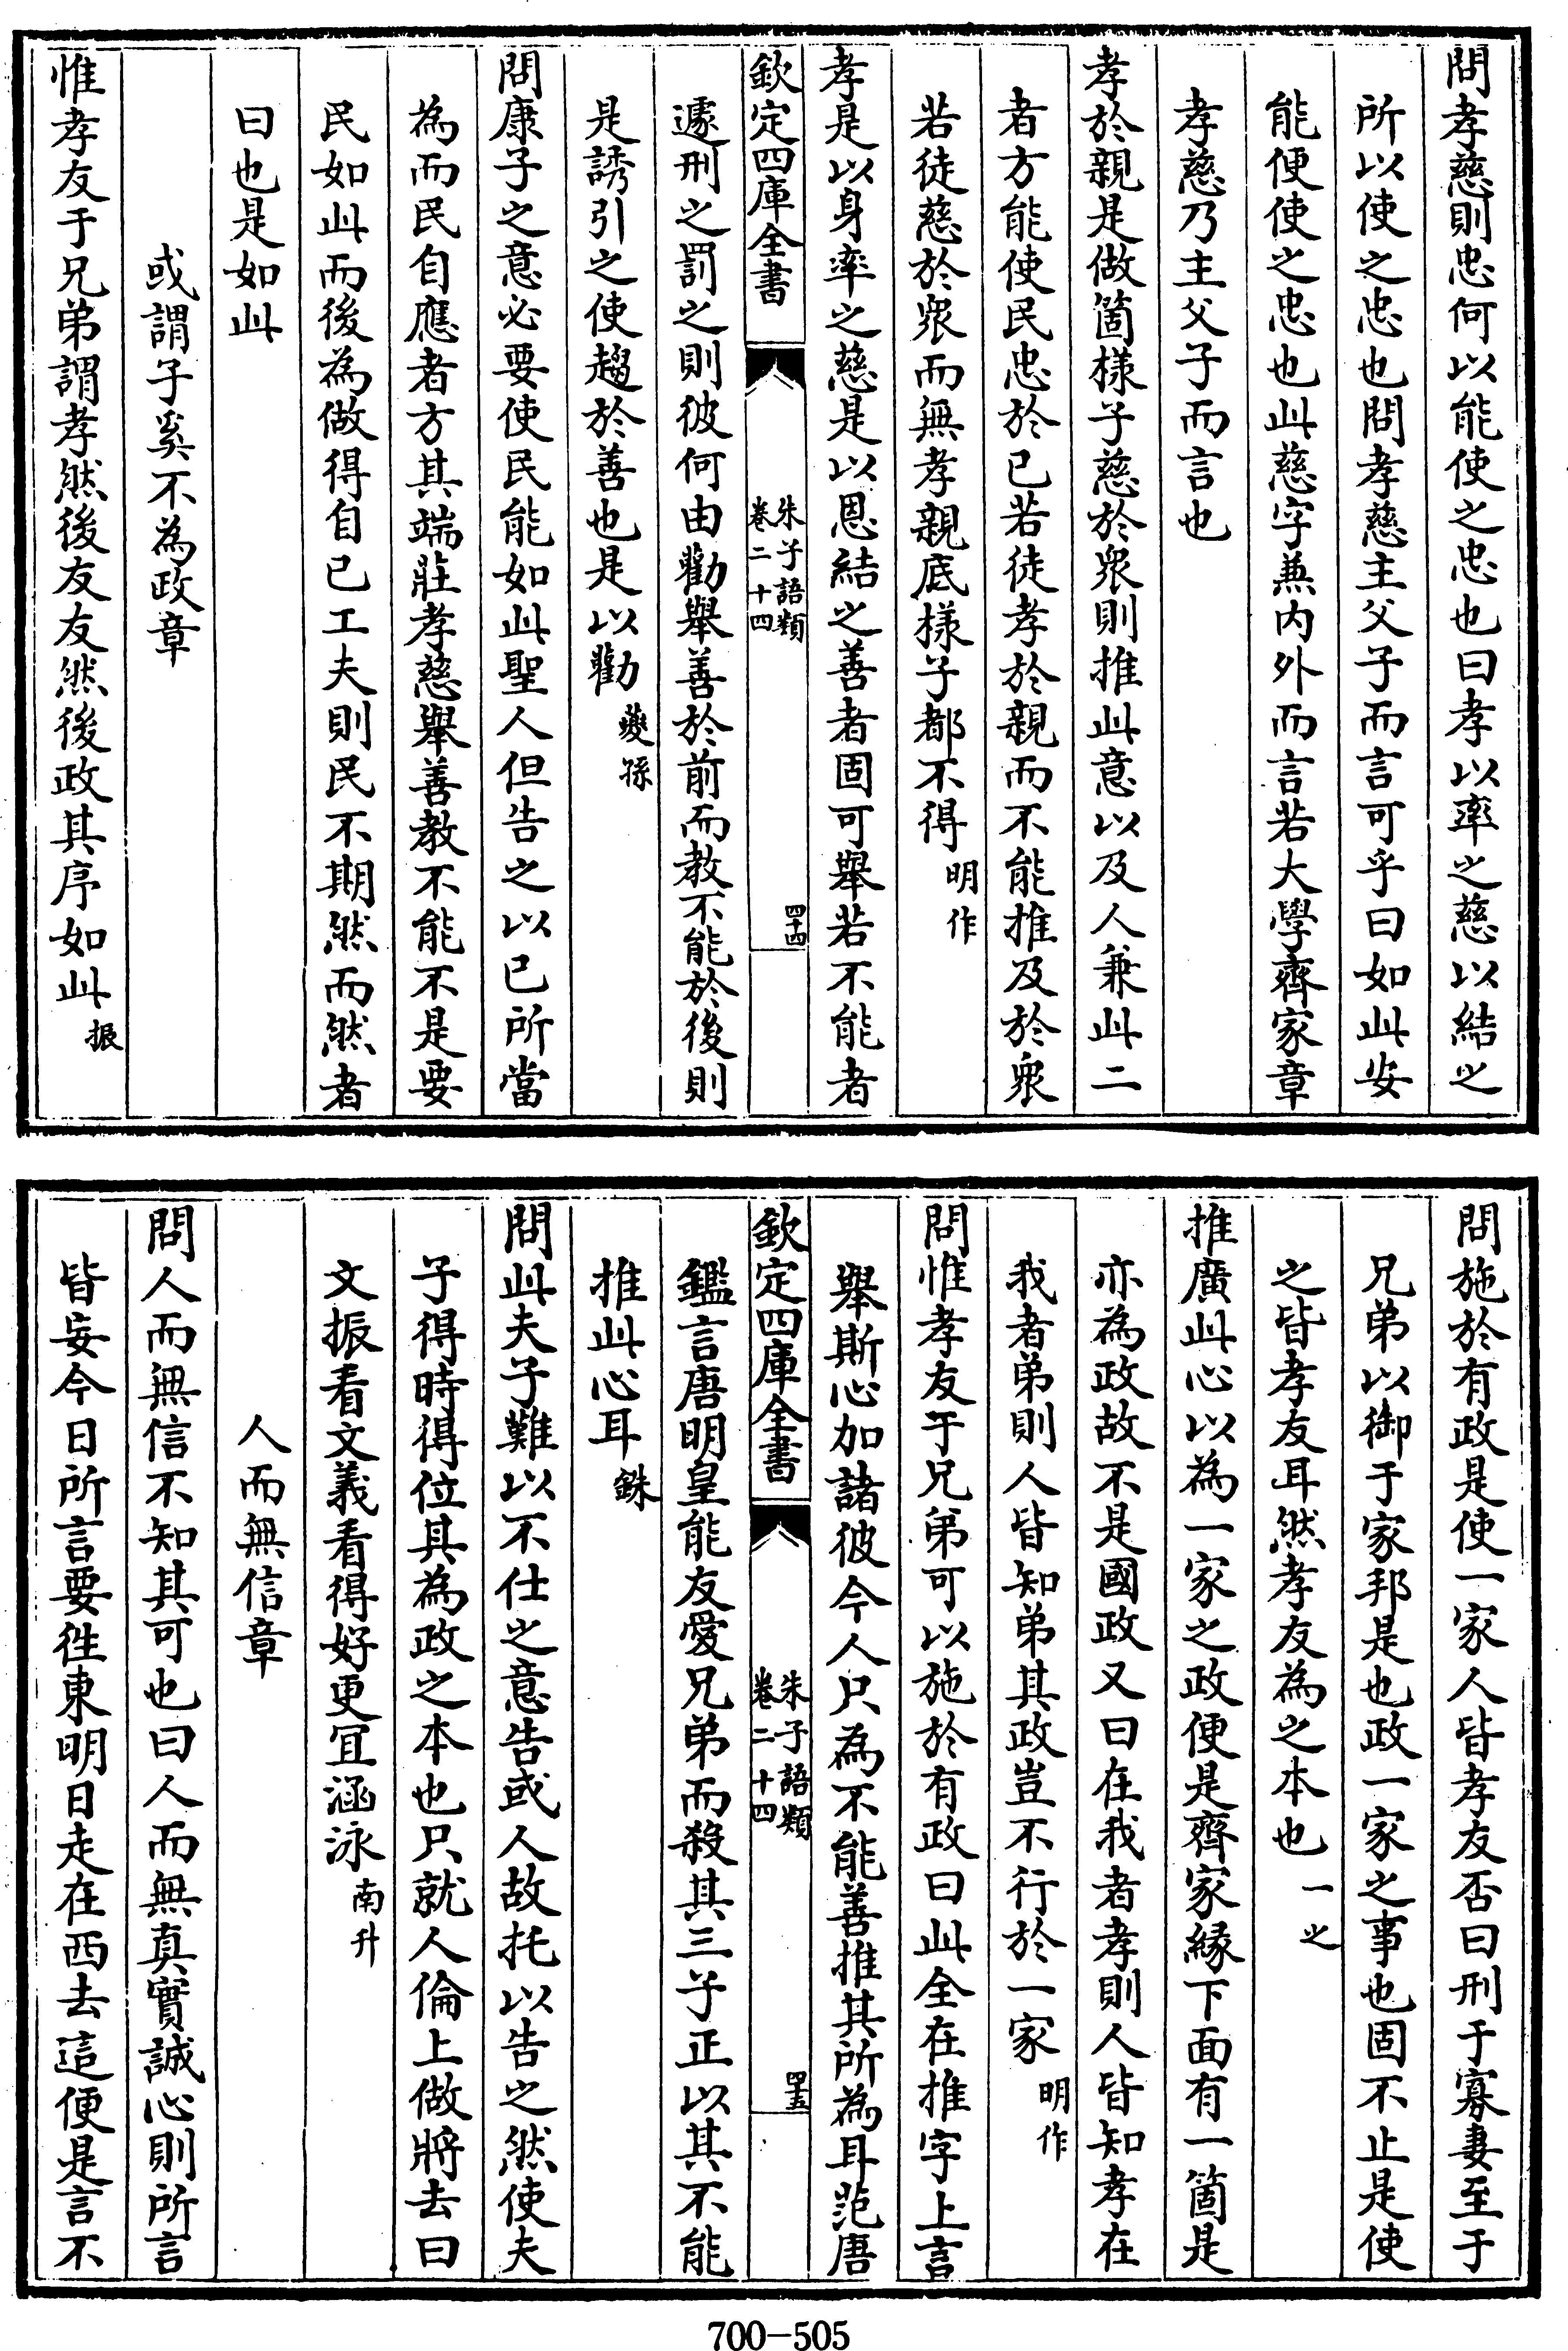 問孝慈則忠何以能使之忠也曰孝以率之慈以結之
所以使之忠也問孝慈主父子而言可乎曰如此安
能便使之忠也此慈字兼内外而言若大學齊家章
孝慈乃主父子而言也
孝於親是做箇樣子慈於衆則推此意以及人兼此二
者方能使民忠於已若徒孝於親而不能推及於衆
若徒慈於衆而無孝親底樣子都不得明作
孝是以身率之慈是以恩結之善者固可舉若不能者
欽定四庫全書
朱子語類
卷二十四
四十四
遽刑之罰之則彼何由勸舉善於前而教不能於後則
是誘引之使趨於善也是以勸夔孫
問康子之意必要使民能如此聖人但告之以已所當
為而民自應者方其端莊孝慈舉善教不能不是要
民如此而後為做得自已工夫則民不期然而然者
曰也是如此
或謂子奚不為政章
惟孝友于兄弟謂孝然後友友然後政其序如此振
問施於有政是使一家人皆孝友否曰刑于寡妻至于
兄弟以御于家邦是也政一家之事也固不止是使
之皆孝友耳然孝友為之本也一之
推廣此心以為一家之政便是齊家緣下面有一箇是
亦為政故不是國政又曰在我者孝則人皆知孝在
我者弟則人皆知弟其政豈不行於一家明作
問惟孝友于兄弟可以施於有政曰此全在推字上言
舉斯心加諸彼今人只為不能善推其所為耳范唐
欽定四庫全書
朱子語類
卷二十四
四十五
鑑言唐明皇能友愛兄弟而殺其三子正以其不能
推此心耳銖
問此夫子難以不仕之意告或人故托以告之然使夫
子得時得位其為政之本也只就人倫上做將去曰
文振看文義看得好更宜涵泳南升
人而無信章
問人而無信不知其可也曰人而無真實誠心則所言
皆妄今日所言要徃東明日走在西去這便是言不
700-505